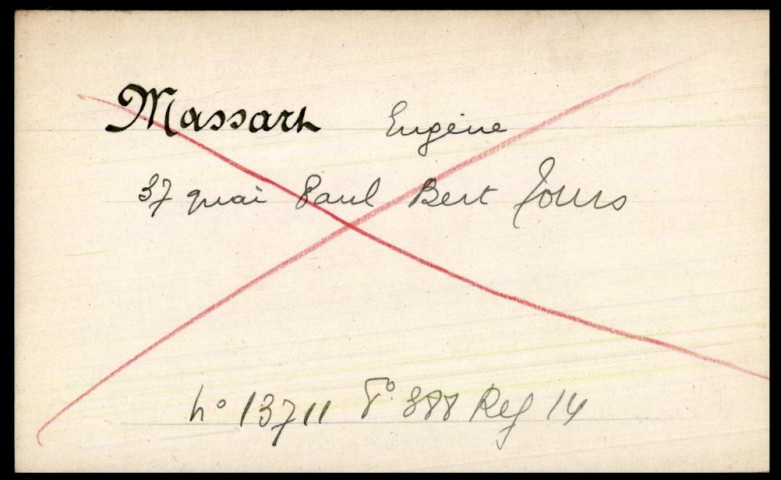 Massart Eugène
37 quai Paul Bert Tours
No 13711 Fo 388 Reg 14